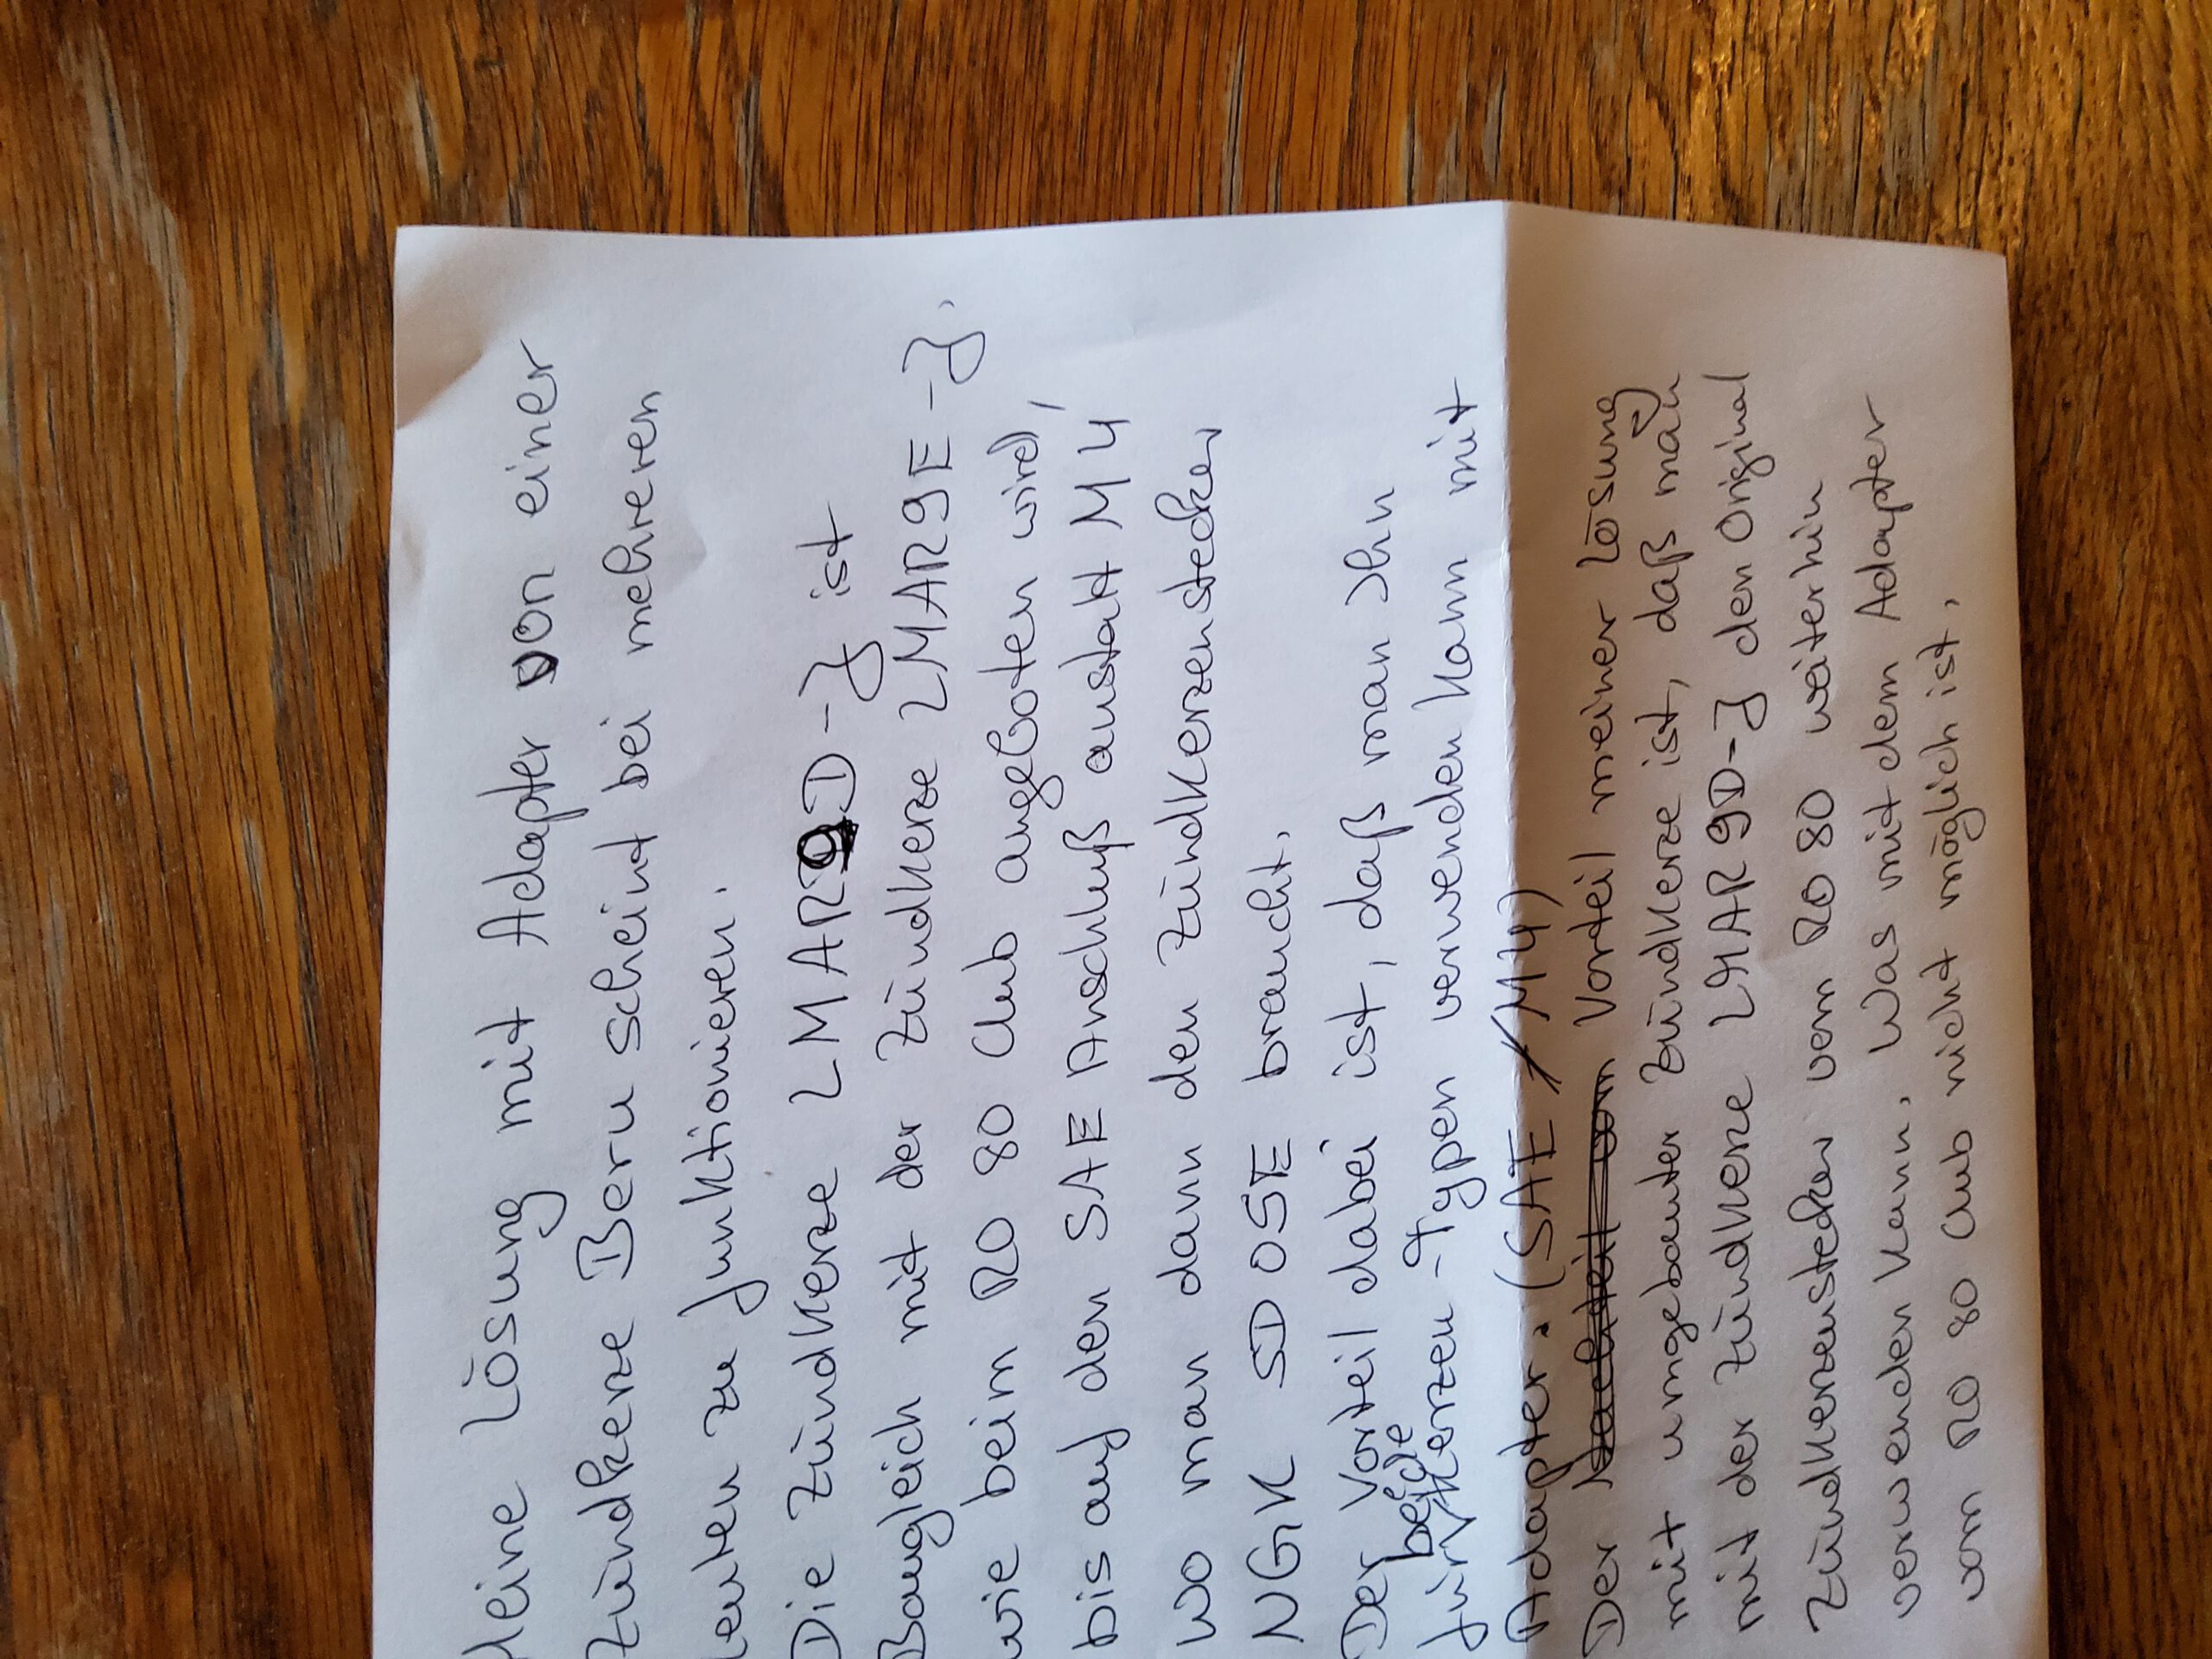 Meine Lösung mit Adapter von einer
Zündkerze Beru scheint bei mehreren
Leuten zu funktionieren.
Die Zündkerze LMAR9D-J ist
Baugleich mit der Zündkerze LMAR9E-J.
wie beim RO 80 Club angeboten wird,
bis auf den SAE Anschluß anstatt M4
wo man dann den Zündkerzenstecker
NGK SD05E braucht.
Der Vorteil dabei ist, daß man Ihn
für beide Kerzen-Typen verwenden kann mit
Adapter. (SAE / M4)
Der Vorteil meiner Lösung
mit umgebauter Zündkerze ist, daß man
mit der Zündkerze LMAR9D-J den Original
Zündkerzenstecker vom RO 80 weiterhin
verwenden kann. Was mit dem Adapter
vom RO 80 Club nicht möglich ist.